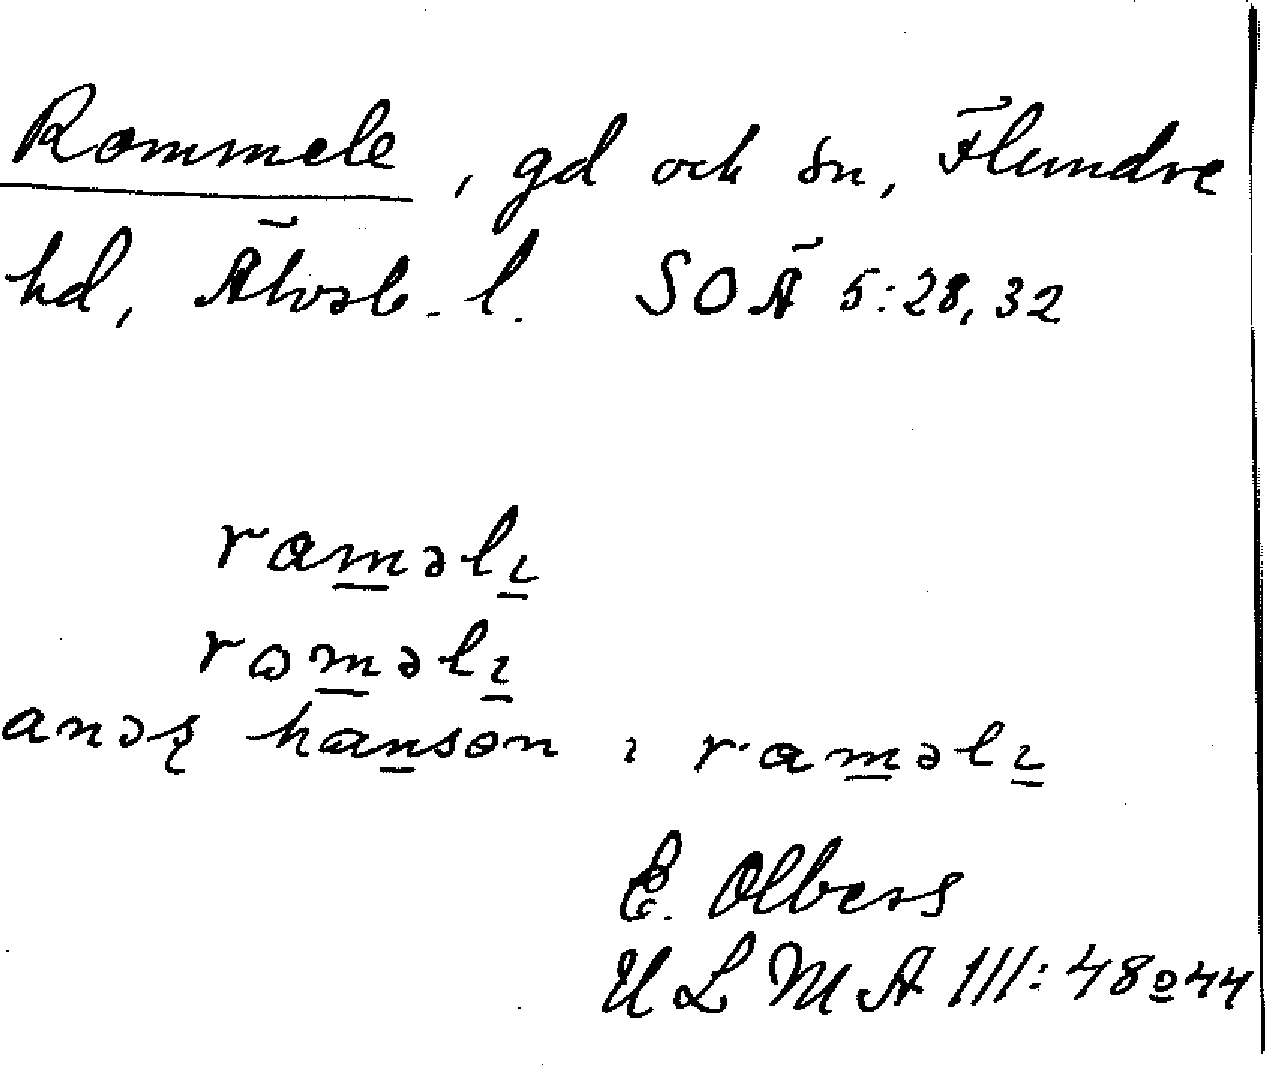 Rommele, gd och sn, Flundre
hd, Älvsb. l. SOÄ 5:28, 32
raməlı
roməlı
anəʂ hanson ı raməlı
E. Olbers
ULMA III:48 o 44